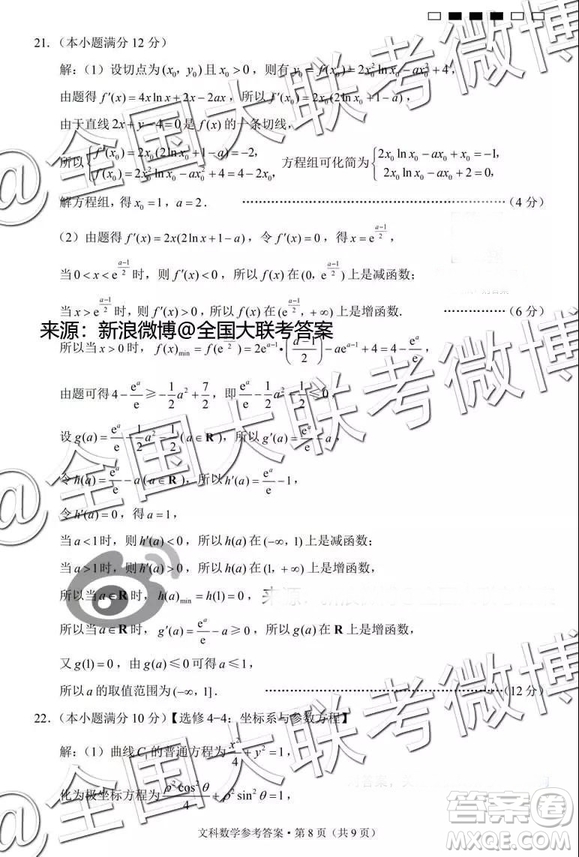 21.（本小题满分 12 分）
解：（1）设切点为(x₀, y₀)且 x₀>0，则有 y₀=f(x₀)=2x₀²ln x₀−ax₀²+4，
由题得 f′(x)=4xln x+2x−2ax，所以 f′(x₀)=2x₀(2ln x₀+1−a)，
由于直线 2x+y−4=0 是 f(x) 的一条切线，
所以{f′(x₀)=2x₀(2ln x₀+1−a)=−2，f(x₀)=2x₀²ln x₀−ax₀²+4=4−2x₀，方程组可化简为{2x₀ln x₀−ax₀+x₀=−1，2x₀ln x₀−ax₀+2=0，
解方程组，得 x₀=1，a=2．……（4 分）
（2）由题得 f′(x)=2x(2ln x+1−a)，令 f′(x)=0，得 x=e^((a−1)/2)，
当 0<x<e^((a−1)/2) 时，则 f′(x)<0，所以 f(x) 在(0, e^((a−1)/2))上是减函数；
当 x>e^((a−1)/2) 时，则 f′(x)>0，所以 f(x) 在(e^((a−1)/2), +∞)上是增函数．……（6 分）
来源：新浪微博@全国大联考答案
所以当 x>0 时，f(x)min=f(e^((a−1)/2))=2e^(a−1)•((a−1)/2)−ae^(a−1)+4=4−e^(a−1)，
由题可得 4−e^a/e≥−1/2a²+7/2，即 e^a/e−1/2a²−1/2≤0
设 g(a)=e^a/e−1/2a²−1/2(a∈R)，所以 g′(a)=e^a/e−a，
令 h(a)=e^a/e−a(a∈R)，所以 h′(a)=e^a/e−1，
令 h′(a)=0，得 a=1，
当 a<1 时，则 h′(a)<0，所以 h(a) 在(−∞, 1)上是减函数；
当 a>1 时，则 h′(a)>0，所以 h(a) 在(1, +∞)上是增函数；
当 a∈R 时，h(a)min=h(1)=0，
所以当 a∈R 时，g′(a)=e^a/e−a≥0，所以 g(a) 在 R 上是增函数，
又 g(1)=0，由 g(a)≤0 可得 a≤1，
所以 a 的取值范围为(−∞, 1]．……（12 分）
22.（本小题满分 10 分）【选修 4−4：坐标系与参数方程】
解：（1）曲线 C₁ 的普通方程为 x²/4+y²=1，
化为极坐标方程为 ρ²cos²θ/4+ρ²sin²θ=1，
文科数学参考答案・第 8 页（共 9 页）
@全国大联考微博
@全国大联考微博
@全国大联考微博
答案圈
MXQE.COM